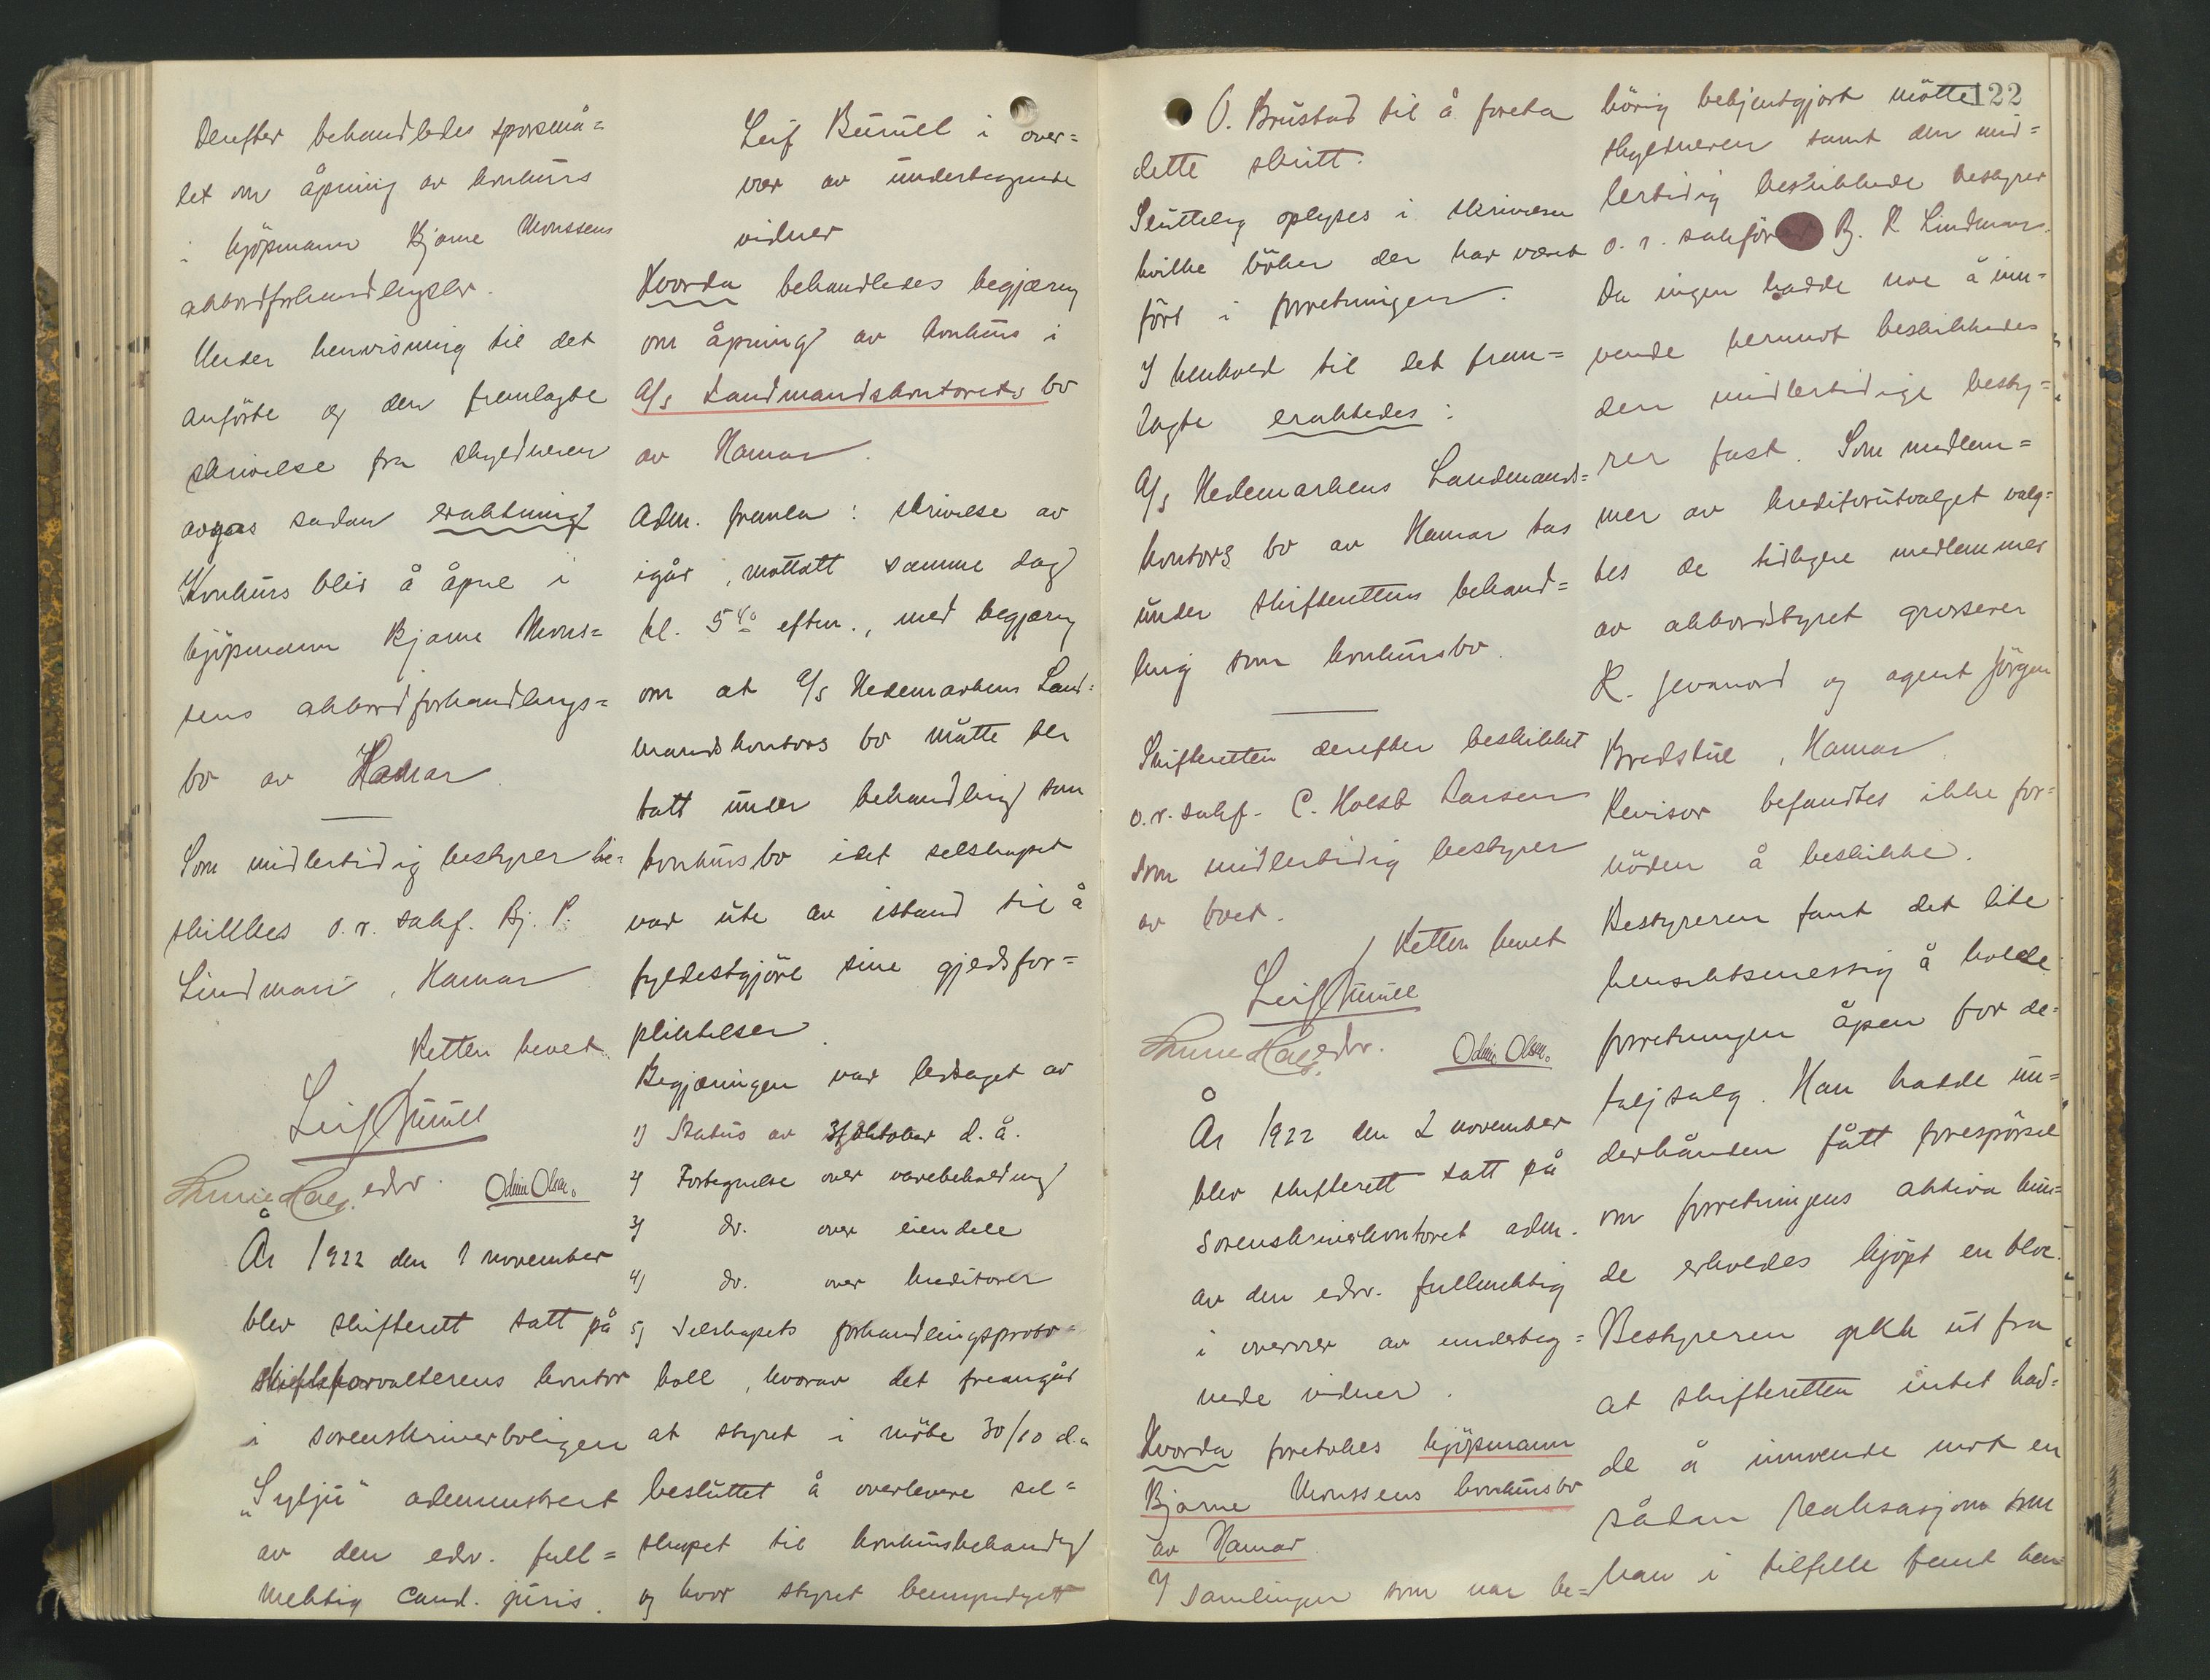 Derefter behandledes spørsmå=
let om åpning av konkurs
i kjöpmann Bjarne Monssens
akkordforhandlingsbo.
Under henvisning til det
anförte og den fremlagte
skrivelse fra skyldneren
avgas sådan eraktning
Konkurs blir å åpne i
kjöpmann Bjarne Mons=
sens akkordforhandlings=
bo av Hamar.
Som midlertidig bestyrer be=
skikkes o.r. sakf. Bj. R.
Lindman, Hamar
Retten hevet
Leif
edsv. Odin Olsen.
År 1922 den 1 november
blev skifterett satt på
skifteforvalterens kontor
i sorenskriverboligen
"Sylju" administrert
av den edsv. full=
mektig cand. juris.
Leif i over=
vær av undertegnede
vidner
Hvorda behandledes begjæring
om åpning av konkurs i
A/s Landmandskontorets bo
av Hamar.
Adm. fremla: skrivelse av
igår, mottatt samme dag
kl. 5 40 efterm., med begjæring
om at A/s Hedemarkens Land=
mandskontors bo måtte bli
tatt under behandling som
konkursbo idet selskapet
var ute av istand til å
fyldestgjöre sine gjeldsfor=
pliktelser.
Begjæringen var ledsaget av
1) Status av 31 oktober d.å.
2) Fortegnelse over varebeholdning
3) do. over eiendele
4) do. over kreditorer
5) Selskapets forhandlingsproto=
koll, hvorav det fremgår
at styret i möte 30/10 d.å.
besluttet å overlevere sel=
skapet til konkursbehandling
og hvor styret bemyndiget
O. Brustad til å foreta
dette skritt.
Sluttelig oplyses i skrivelsen
hvilke böker der har været
fört i forretningen.
I henhold til det frem=
lagte eraktedes:
A/s Hedemarkens Landmands=
kontors bo av Hamar tas
under skifterettens behand=
ling som konkursbo.
Skifteretten derefter beskikket
o.r. sakf. C. Holst Larsen
som midlertidig bestyrer
av boet.
Retten hevet
Leif
edsv. Odin Olsen.
År 1922 den 2 november
blev skifterett satt på
sorenskriverkontoret adm.
av den edsv. fullmektig
i overvær av underteg=
nede vidner.
Hvorda foretokes kjöpmann
Bjarne Monssens konkursbo
av Hamar
I samlingen som var be=
122
hörig bekjentgjort mötte
skyldneren samt den mid=
lertidig beskikkede bestyrer
o.r. sakförer Bj. R. Lindman.
Da ingen hadde noe å inn=
vende herimot beskikkedes
den midlertidige besty=
rer fast. Som medlem=
mer av kreditorutvalget valg=
tes de tidligere medlemmer
av akkordstyret grosserer
K. Jevanord og agent Jörgen
Bredstue, Hamar.
Revisor befandtes ikke for=
nöden å beskikke.
Bestyreren fant det lite
hensiktsmessig å holde
forretningen åpen for de=
taljsalg. Han hadde un=
derhånden fått forespörsel
om forretningens aktiva kun=
de erholdes kjöpt en bloc.
Bestyreren gikk ut fra
at skifteretten intet had=
de å innvende mot en
sådan realisasjon som
han i tilfelle fant hen=